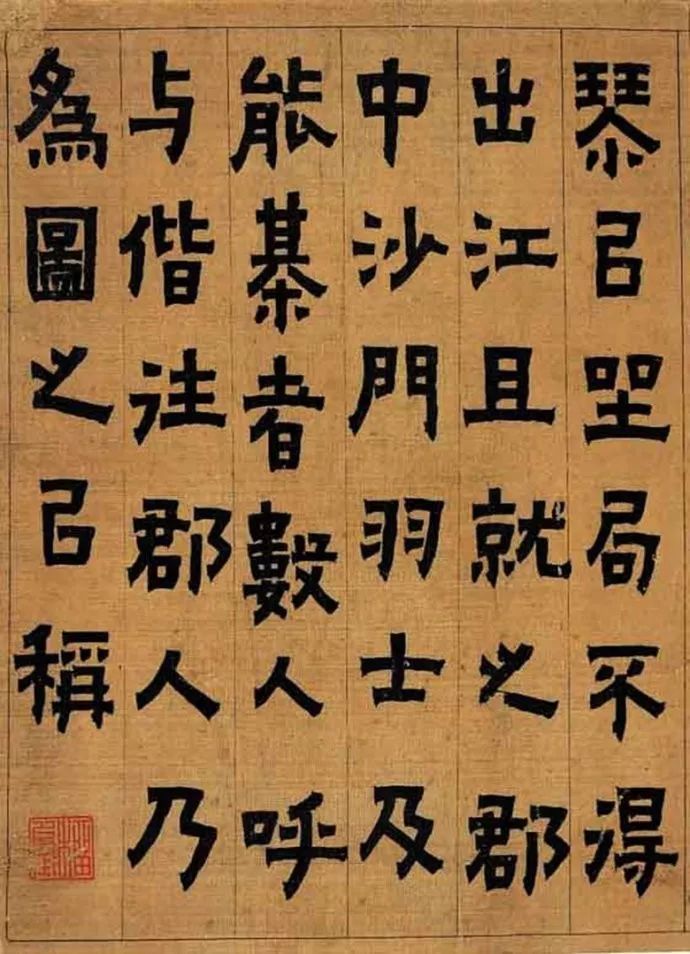 琴㠯坐局不得
出江且就之郡
中沙門羽士及
能棊者數人呼
与偕往郡人乃
爲圖之㠯稱